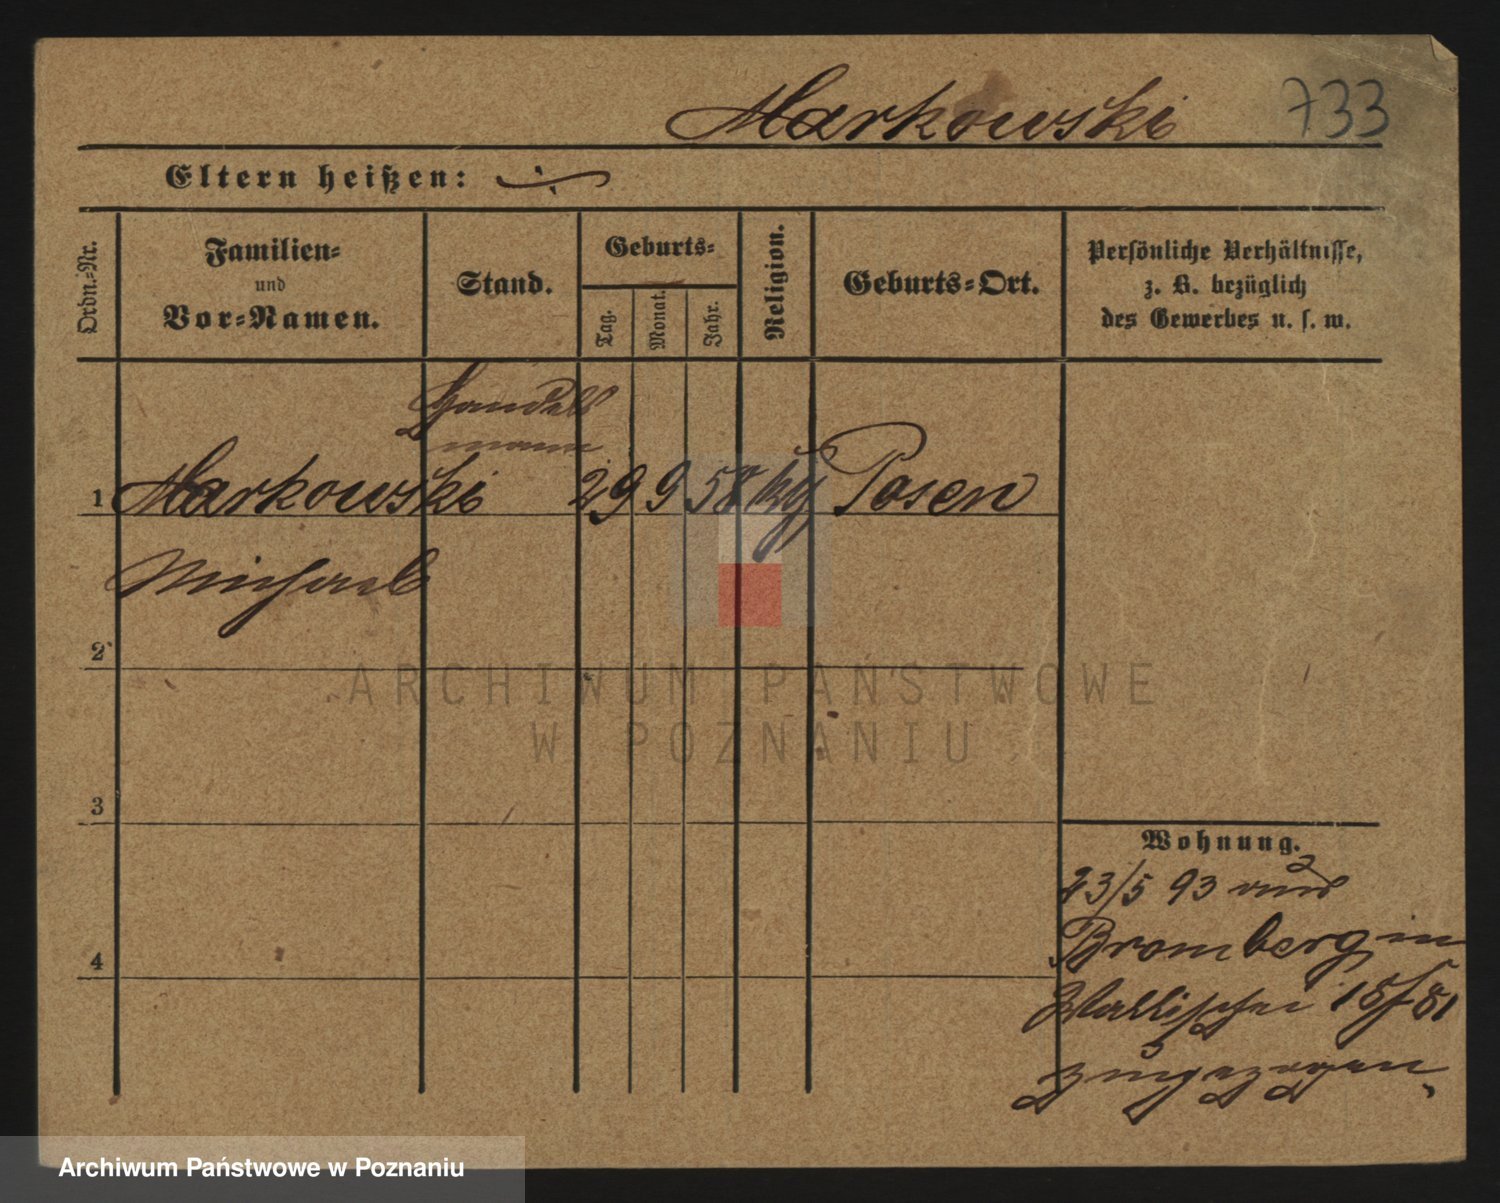 Markowski 733
Eltern heißen: ÷
Ordn.=Nr.
Familien=
und
Vor=Namen.
Stand.
Geburts=
Tag.
Monat.
Jahr.
Religion.
Geburts=Ort.
Persönliche Verhältnisse,
z. B. bezüglich
des Gewerbes u. s. w.
Handels
mann
1 Markowski 29 9 58 Posen
Michael
2
ARCHIWUM PAŃSTWOWE
W POZNANIU
3
Wohnung.
23/5 93 aus
4
Bromberg in
Wallischei
zugezogen
Archiwum Państwowe w Poznaniu